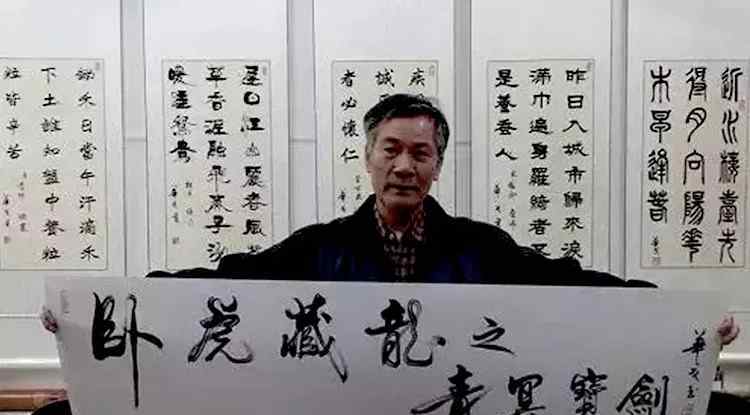 鋤禾日當午汗滴禾
下土誰知盤中餐粒
粒皆辛苦
遲日江山麗春風花
草香泥融飛燕子沙
暖睡鴛鴦
疾
城
者必懷仁
昨日入城市歸來淚
滿巾遍身羅綺者不
是養蠶人
近水樓臺先
得月向陽花
木易逢春
臥虎藏龍之
青冥寶劍
華戈